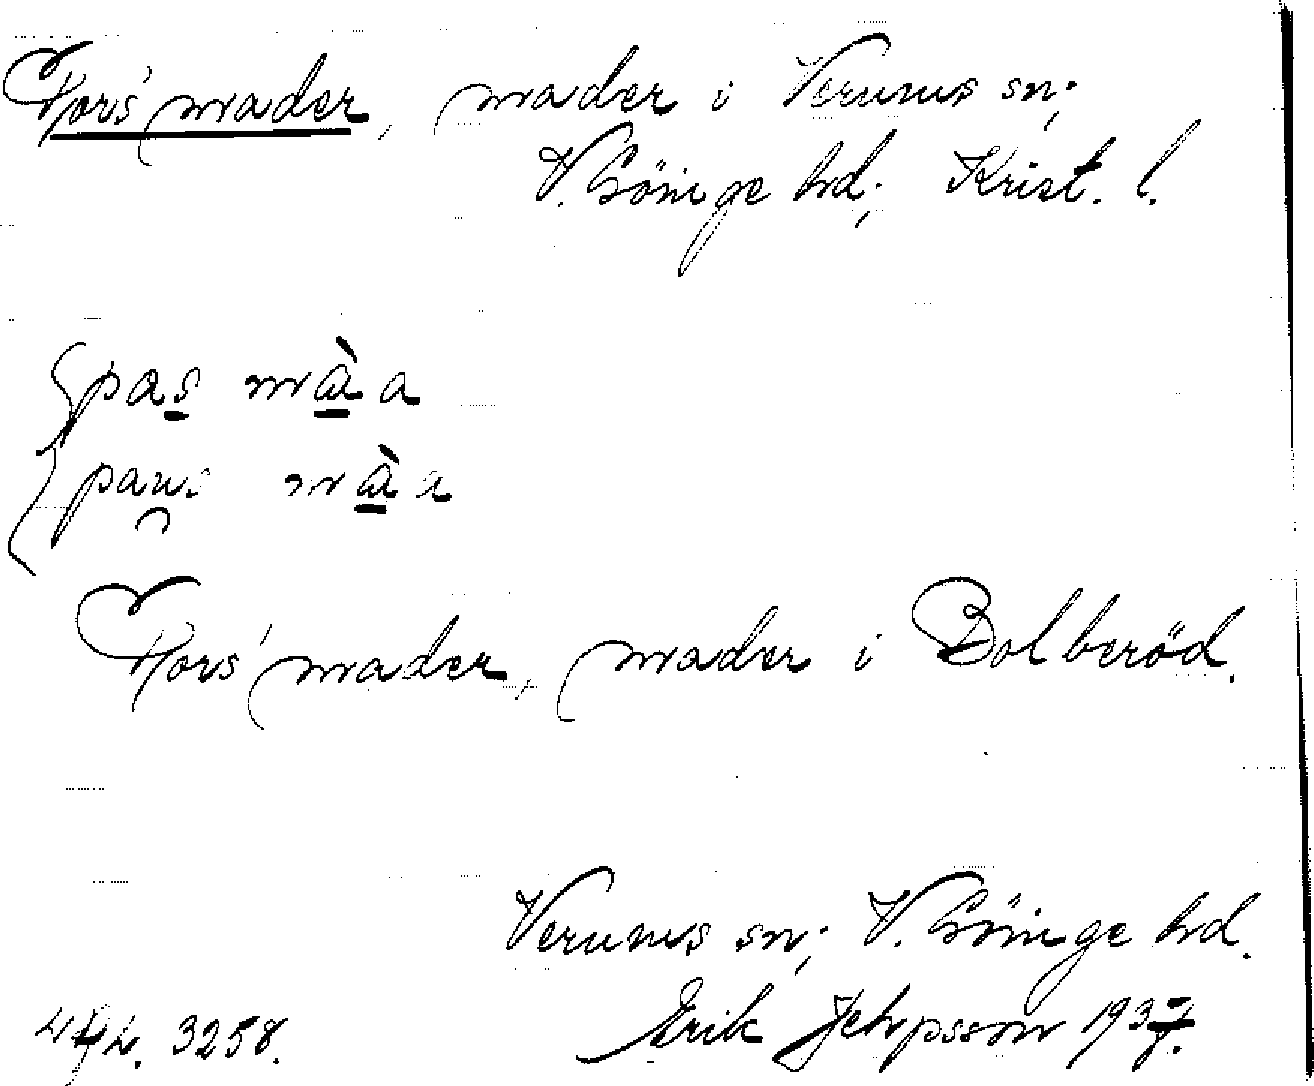 Pors'mader, mader i Verums sn;
V. Göinge hd; Krist. l.
pas màa
paus màa
Pors'mader, mader i Bolberöd.
Verums sn; V. Göinge hd.
3258. Erik Jehpsson 1937.